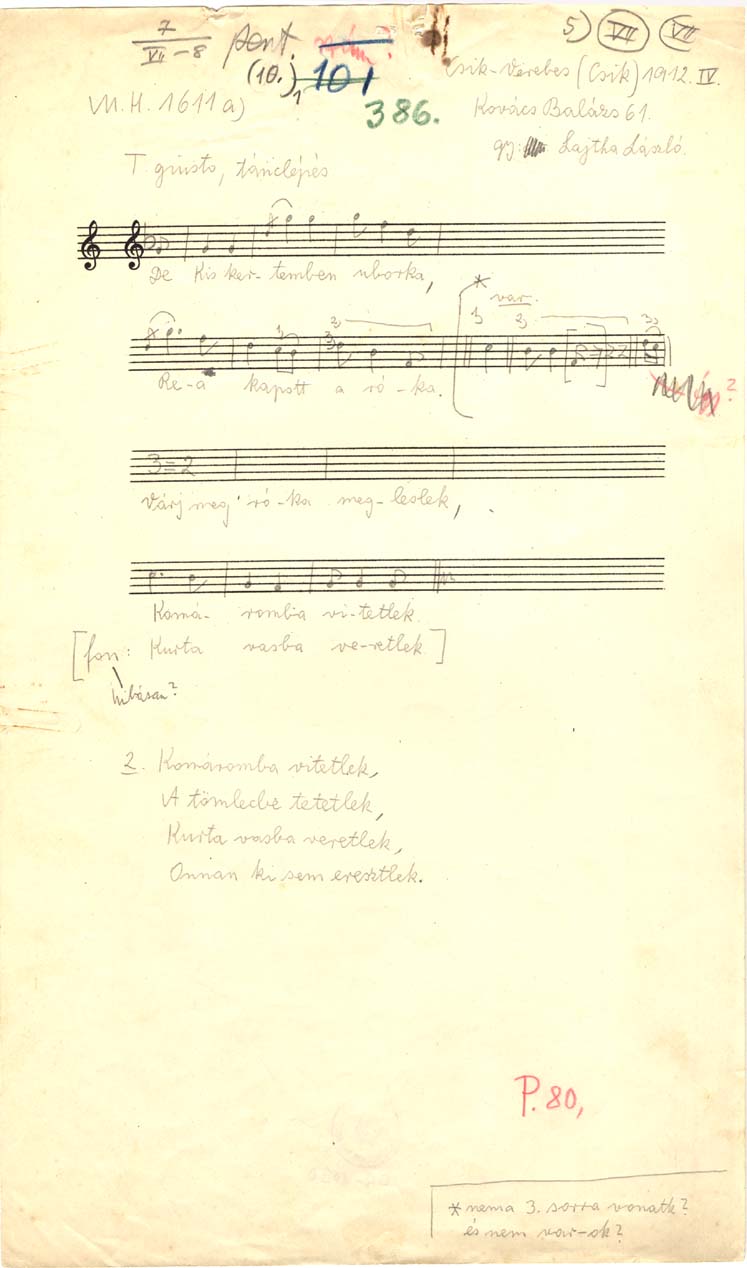 7
VII-8 pont. 5) VII VII
(10.)1 101 Csik-Verebes (Csik) 1912. IV.
M.H. 1611 a) 386. Kovács Balázs 61.
gy: Lajtha László.
T. giusto, tánclépés
De Kis ker-temben uborka,
* var.
1) 2)
1) 2) 3) 3)
Re-á kapott a ró-ka. ?
3=2
Várj meg ró-ka meg-leslek,
Komá- romba vi-tetlek
[fon: Kurta vasba ve-retlek]
hibásan?
2. Komáromba vitetlek,
A tömlecbe tetetlek,
Kurta vasba veretlek,
Onnan ki sem eresztlek.
P. 80,
* nem a 3. sorra vonatk?
és nem var-ok?